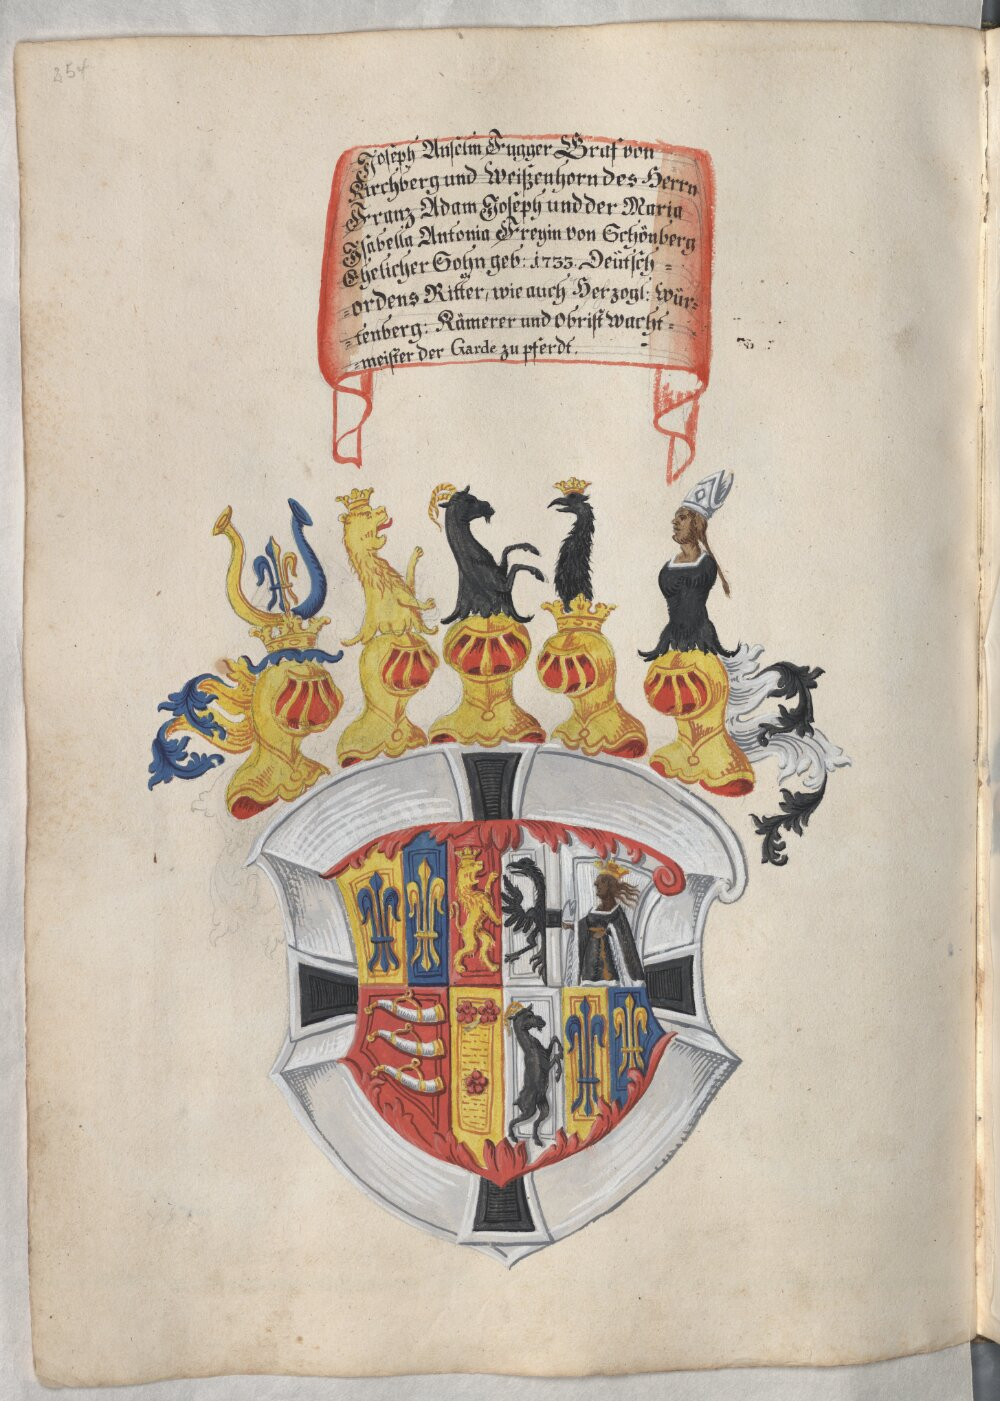 254
Joseph Anselm Fugger Graf von
Kirchberg und Weißenhorn des Herrn
Franz Adam Joseph und der Maria
Isabella Antonia Freyin von Schönberg
Ehelicher Sohn geb: 1733. Deütsch-
-ordens Ritter, wie auch Herzogl: Wür-
-tenberg: Kämerer und Obrist wacht-
-meister der Garde zu pferdt.